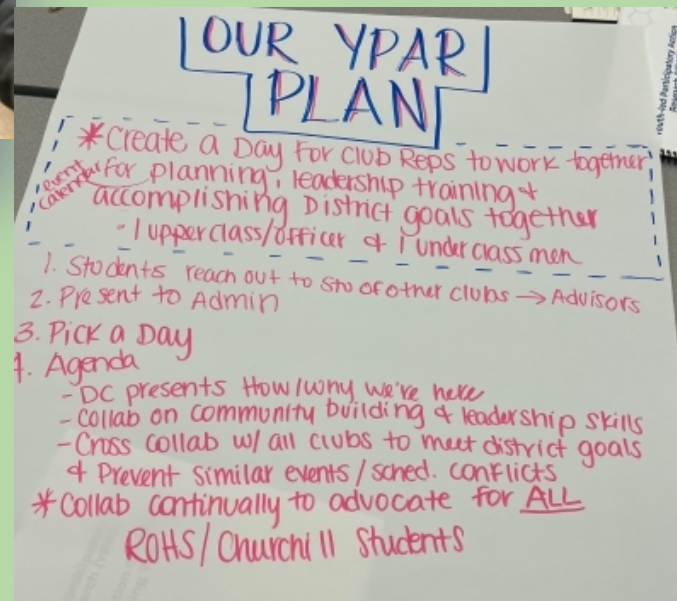 OUR YPAR
PLAN
*Create a Day For Club Reps to work together
event
calendar
for planning, leadership training &
accomplishing District goals together
- 1 upperclass/officer & 1 underclassmen
1. Students reach out to stu of other clubs → Advisors
2. Present to Admin
3. Pick a Day
4. Agenda
- DC presents How/why we're here
- Collab on community building & leadership skills
- Cross collab w/ all clubs to meet district goals
& Prevent similar events/sched. conflicts
*Collab continually to advocate for ALL
ROHS/Churchill Students
Youth-led Participatory Action